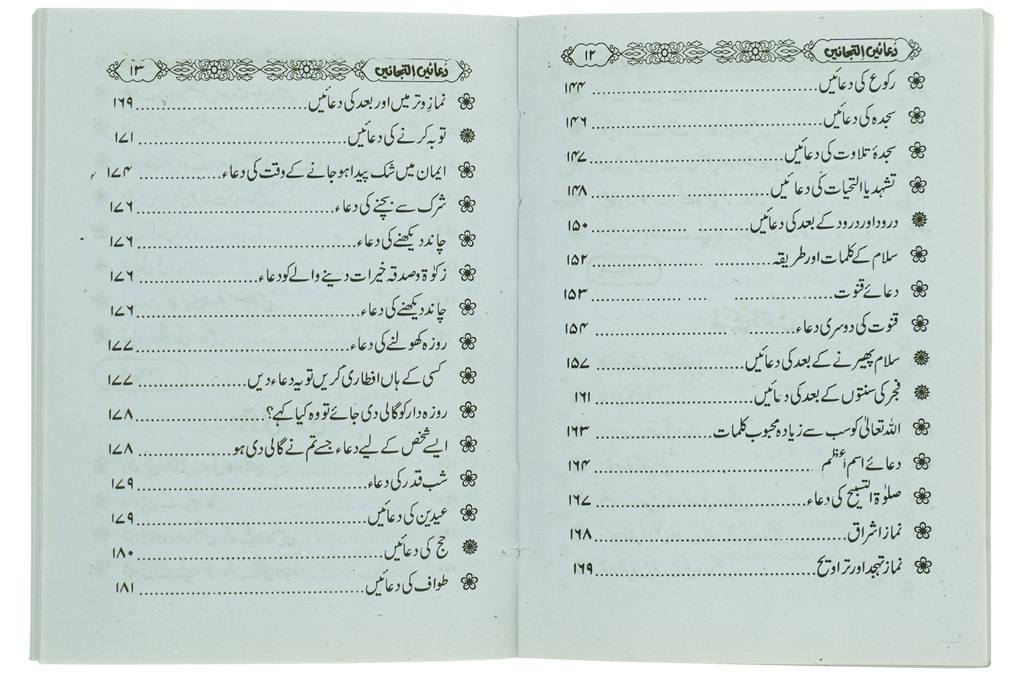 دُعائیں التجائیں ۱۲
رکوع کی دعائیں ۱۴۴
سجدہ کی دعائیں ۱۴۶
سجدۂ تلاوت کی دعائیں ۱۴۷
تشہد یا التحیات کی دعائیں ۱۴۸
درود اور درود کے بعد کی دعائیں ۱۵۰
سلام کے کلمات اور طریقہ ۱۵۲
دعائے قنوت ۱۵۳
قنوت کی دوسری دعاء ۱۵۴
سلام پھیرنے کے بعد کی دعائیں ۱۵۷
فجر کی سنتوں کے بعد کی دعائیں ۱۶۱
اللہ تعالیٰ کو سب سے زیادہ محبوب کلمات ۱۶۳
دعائے اسم اعظم ۱۶۴
صلوٰۃ التسبیح کی دعاء ۱۶۷
نماز اشراق ۱۶۸
نماز تہجد اور تراویح ۱۶۹
دُعائیں التجائیں ۱۳
نمازِ وتر میں اور بعد کی دعائیں ۱۶۹
توبہ کرنے کی دعائیں ۱۷۱
ایمان میں شک پیدا ہو جانے کے وقت کی دعاء ۱۷۴
شرک سے بچنے کی دعاء ۱۷۶
چاند دیکھنے کی دعاء ۱۷۶
زکوٰۃ و صدقہ خیرات دینے والے کو دعاء ۱۷۶
چاند دیکھنے کی دعاء ۱۷۶
روزہ کھولنے کی دعاء ۱۷۷
کسی کے ہاں افطاری کریں تو یہ دعاء دیں ۱۷۷
روزہ دار کو گالی دی جائے تو وہ کیا کہے؟ ۱۷۸
ایسے شخص کے لیے دعاء جسے تم نے گالی دی ہو ۱۷۸
شب قدر کی دعاء ۱۷۹
عیدین کی دعائیں ۱۷۹
حج کی دعائیں ۱۸۰
طواف کی دعائیں ۱۸۱